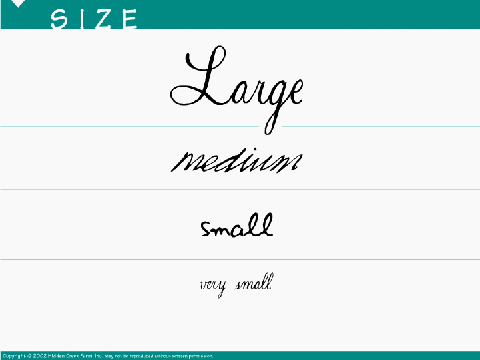 SIZE
Large
medium
small
very small
Copyright © 2002 Hidden Cove Fonts, Inc. May not be reproduced without written permission.